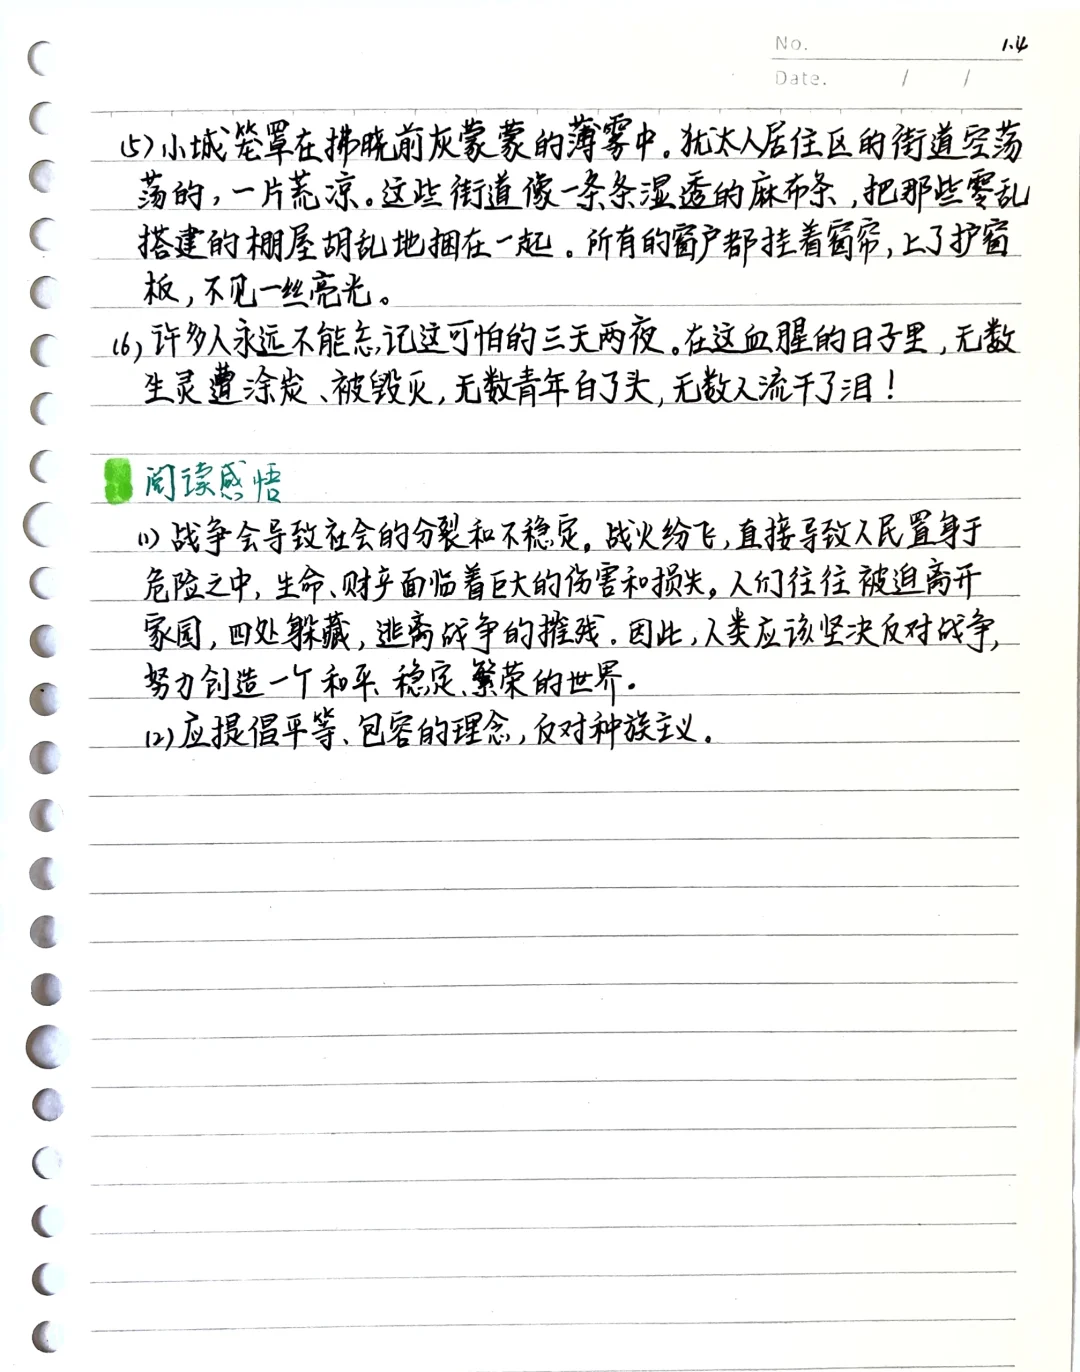 No. 1.4
Date. / /
(5)小城笼罩在拂晓前灰蒙蒙的薄雾中。犹太人居住区的街道空荡
荡的，一片荒凉。这些街道像一条条湿透的麻布条，把那些零乱
搭建的棚屋胡乱地捆在一起。所有的窗户都挂着窗帘，上了护窗
板，不见一丝亮光。
(6)许多人永远不能忘记这可怕的三天两夜。在这血腥的日子里，无数
生灵遭涂炭、被毁灭，无数青年白了头，无数人流干了泪！
阅读感悟
(1)战争会导致社会的分裂和不稳定。战火纷飞，直接导致人民置身于
危险之中，生命、财产面临着巨大的伤害和损失。人们往往被迫离开
家园，四处躲藏，逃离战争的摧残。因此，人类应该坚决反对战争，
努力创造一个和平、稳定、繁荣的世界。
(2)应提倡平等、包容的理念，反对种族主义。